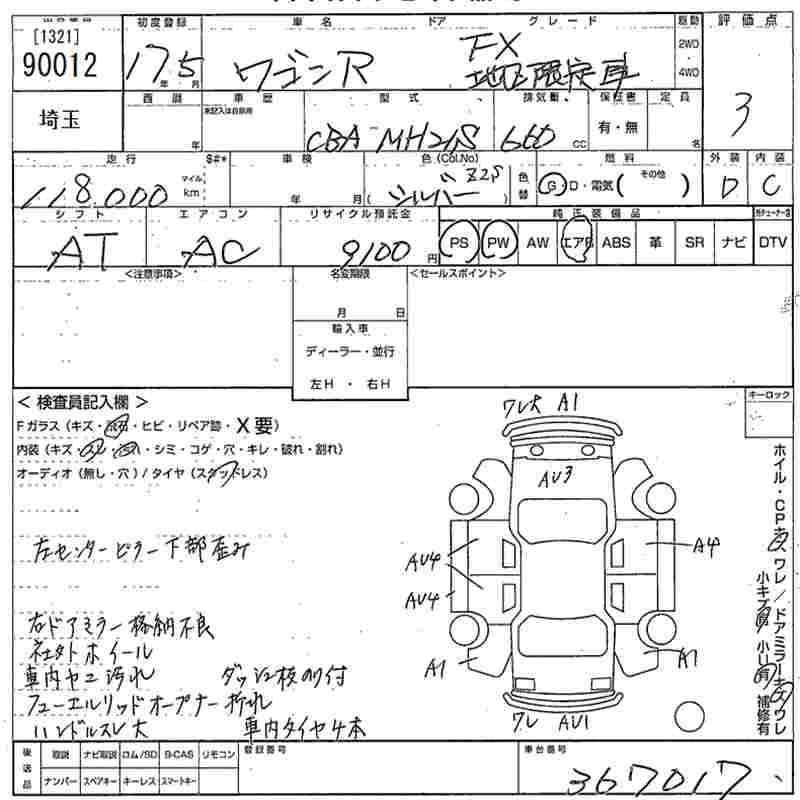 [1321]
90012
埼玉
初度登録
17 5
年 月
車名 ドア グレード
ワゴンR
FX
地区限定車
駆動
2WD
4WD
評価点
3
西暦
年
車歴
未記入は自家用
型式
CBA-MH21S
排気量
660
CC
保証書
有・無
定員
名
走行
118,000
マイル
km
車検
年 月
色(Col.No)
シルバー Z2S
色替
燃料
G・D・電気( その他 )
外装
D
内装
C
シフト
AT
エアコン
AC
リサイクル預託金
9100
円
純正装備品
PS PW AW エアB ABS 革 SR ナビ DTV
<注意事項>
名変期限
月 日
輸入車
ディーラー・並行
左H ・ 右H
<セールスポイント>
キーロック
< 検査員記入欄 >
Fガラス(キズ・飛石・ヒビ・リペア跡・X要)
内装(キズ・スレ・汚れ・シミ・コゲ・穴・キレ・破れ・割れ)
オーディオ(無し・穴)/タイヤ(スタッドレス)
左センターピラー下部歪み
右ドアミラー格納不良
社外ホイール
車内ヤニ汚れ ダッシュ板のり付
フューエルリッドオープナー折れ
ハンドルスレ大 車内タイヤ4本
ワレ大 A1
AU3
AU4
AU4
A4
A1
A1
ワレ AU1
小キズ有 小凹有 補修有
後送品
取説 ナビ取説 ロム/SD B-CAS リモコン
ナンバー スペアキー キーレス スマートキー
登録番号
車台番号
367017